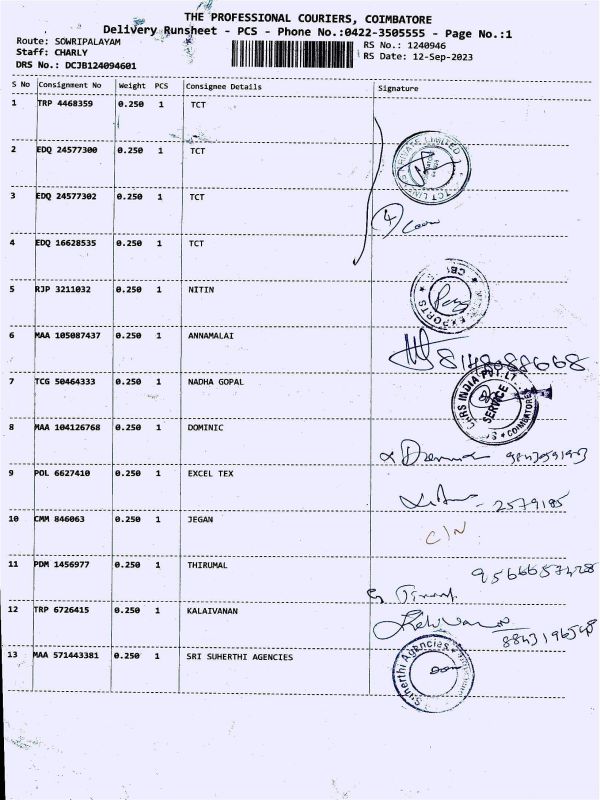 THE PROFESSIONAL COURIERS, COIMBATORE
Delivery Runsheet - PCS - Phone No.:0422-3505555 - Page No.:1
Route: SOWRIPALAYAM
RS No.: 1240946
Staff: CHARLY
RS Date: 12-Sep-2023
DRS No.: DCJB124094601
S No Consignment No Weight PCS Consignee Details Signature
1 TRP 4468359 0.250 1 TCT
2 EDQ 24577300 0.250 1 TCT
3 EDQ 24577302 0.250 1 TCT
4
4 EDQ 16628535 0.250 1 TCT
5 RJP 3211032 0.250 1 NITIN
EXPORTS
6 MAA 105087437 0.250 1 ANNAMALAI
8148088668
7 TCG 50464333 0.250 1 NADHA GOPAL
INDIA PVT. LT
SERVICE
COIMBATORE
8 MAA 104126768 0.250 1 DOMINIC
9 POL 6627410 0.250 1 EXCEL TEX
2579185
10 CMM 846063 0.250 1 JEGAN
C/N
11 PDM 1456977 0.250 1 THIRUMAL
9566657428
12 TRP 6726415 0.250 1 KALAIVANAN
13 MAA 571443381 0.250 1 SRI SUHERTHI AGENCIES
Suherthi Agencies